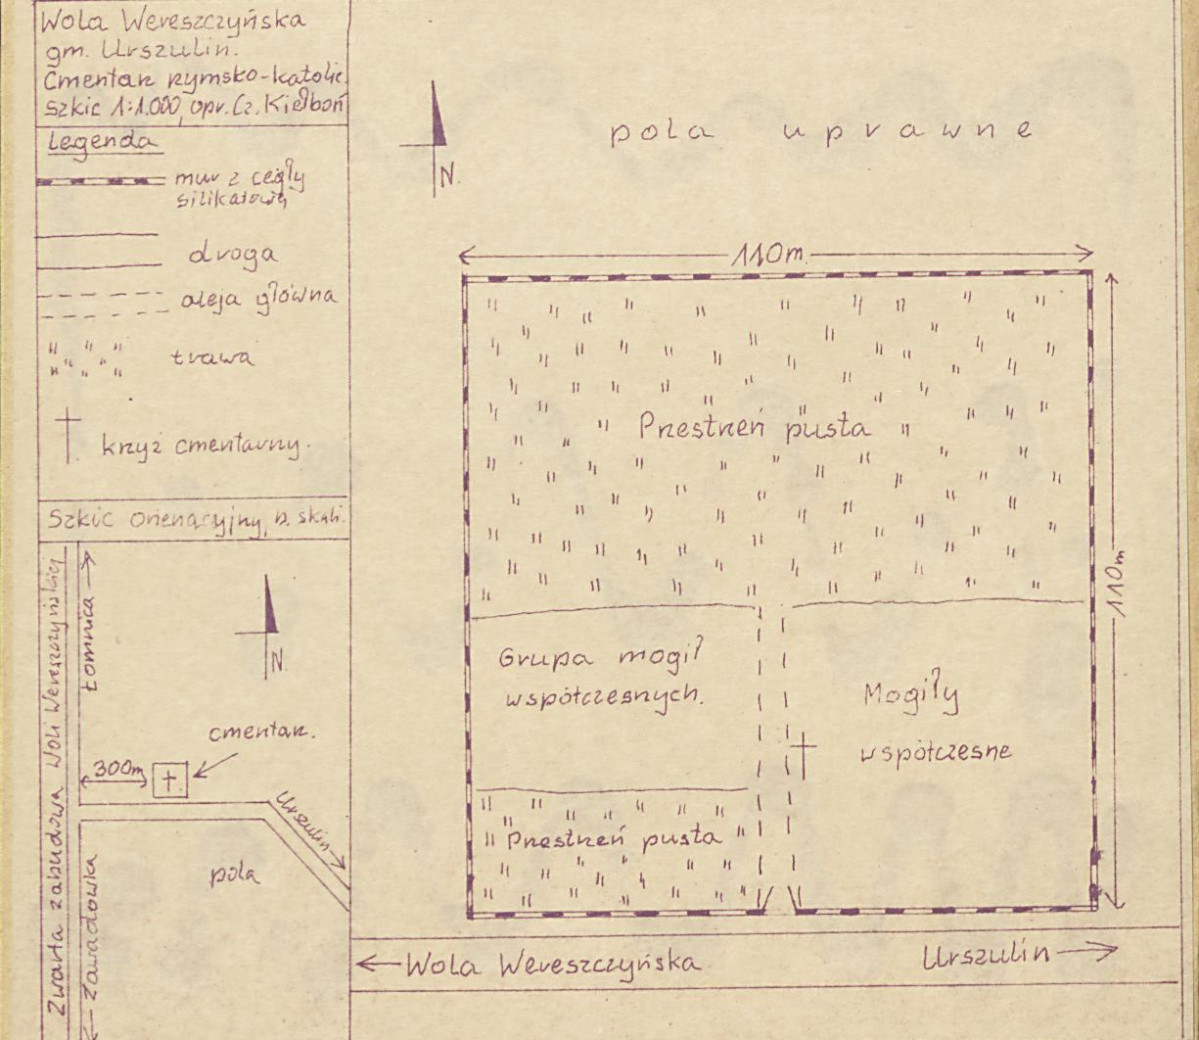 Wola Wereszczyńska
gm. Urszulin.
Cmentarz rzymsko-katolic.
szkic 1:1.000, opr. Cz. Kiełboń
Legenda
mur z cegły
silikatowej
droga
aleja główna
trawa
krzyż cmentarny.
Szkic orienacyjny, b. skali.
Zwarta zabudowa Woli Wereszczyńskiej
Łomnica
N
cmentarz.
300m
Urszulin
pola
Zawadówka
N.
pola uprawne
110m
110m
Przestrzeń pusta
Grupa mogił
współczesnych.
Mogiły
współczesne
Przestrzeń pusta
Wola Wereszczyńska
Urszulin